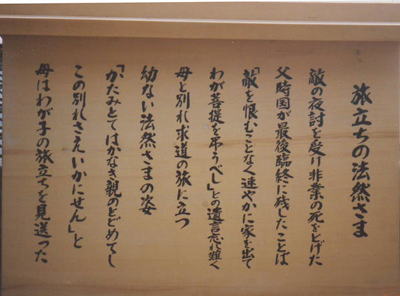 旅立ちの法然さま
敵の夜討を受け非業の死をとげた
父時国が最後臨終に残したことば
「敵を恨むことなく速やかに家を出て
わが菩提を弔うべし」との遺言忘れ難く
母と別れ求道の旅に立つ
幼ない法然さまの姿
「かたみとてはかなき親のとどめてし
この別れさえいかにせん」と
母はわが子の旅立ちを見送った